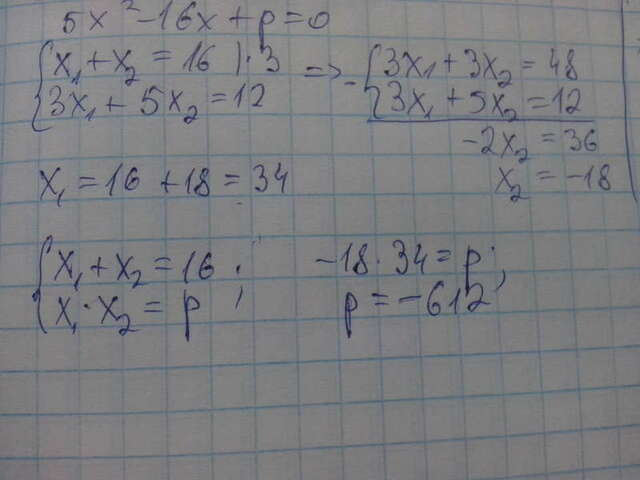 5x² - 16x + p = 0
{ x₁ + x₂ = 16 | · 3
{ 3x₁ + 5x₂ = 12
=> - { 3x₁ + 3x₂ = 48
{ 3x₁ + 5x₂ = 12
-2x₂ = 36
x₂ = -18
x₁ = 16 + 18 = 34
{ x₁ + x₂ = 16 ;
{ x₁ · x₂ = p ;
-18 · 34 = p ;
p = -612